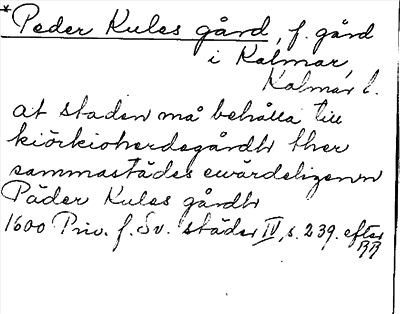 *Peder Kules gård, f. gård
i Kalmar,
Kalmar l.
at staden må behålla till
kiörkioherdegårdh ther
sammastädes ewärdeligenn
Päder Kules gårdh
1600 Priv. f. Sv. städer IV, s. 239. efter
RR